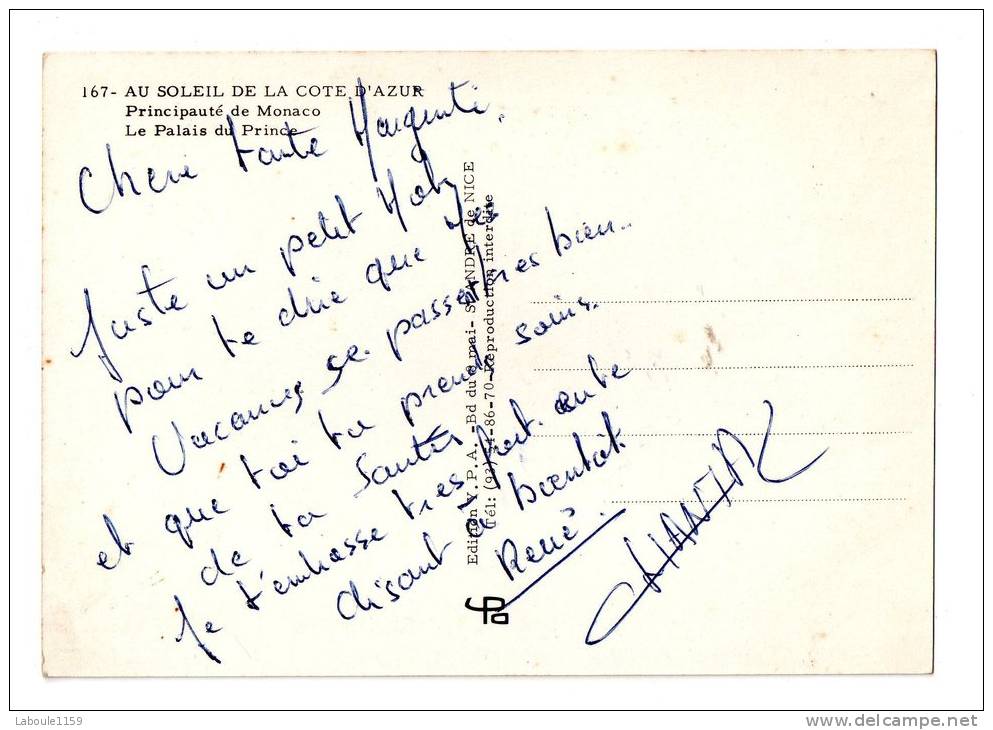 167- AU SOLEIL DE LA COTE D'AZUR
Principauté de Monaco
Le Palais du Prince
Chere tante
Juste un petit Mot
pour te dire que Mes
Vacances se passe tres bien..
et que toi tu prend soins.
de ta Santer
Je t'embrasse tres fort. en te
disant a bientôt.
René.
CHANTAL
Edition Y. P. A. -Bd du mai- St ANDRE de NICE
Tél: (93) 54-86-70-Reproduction interdite
Laboule1159
www.delcampe.net